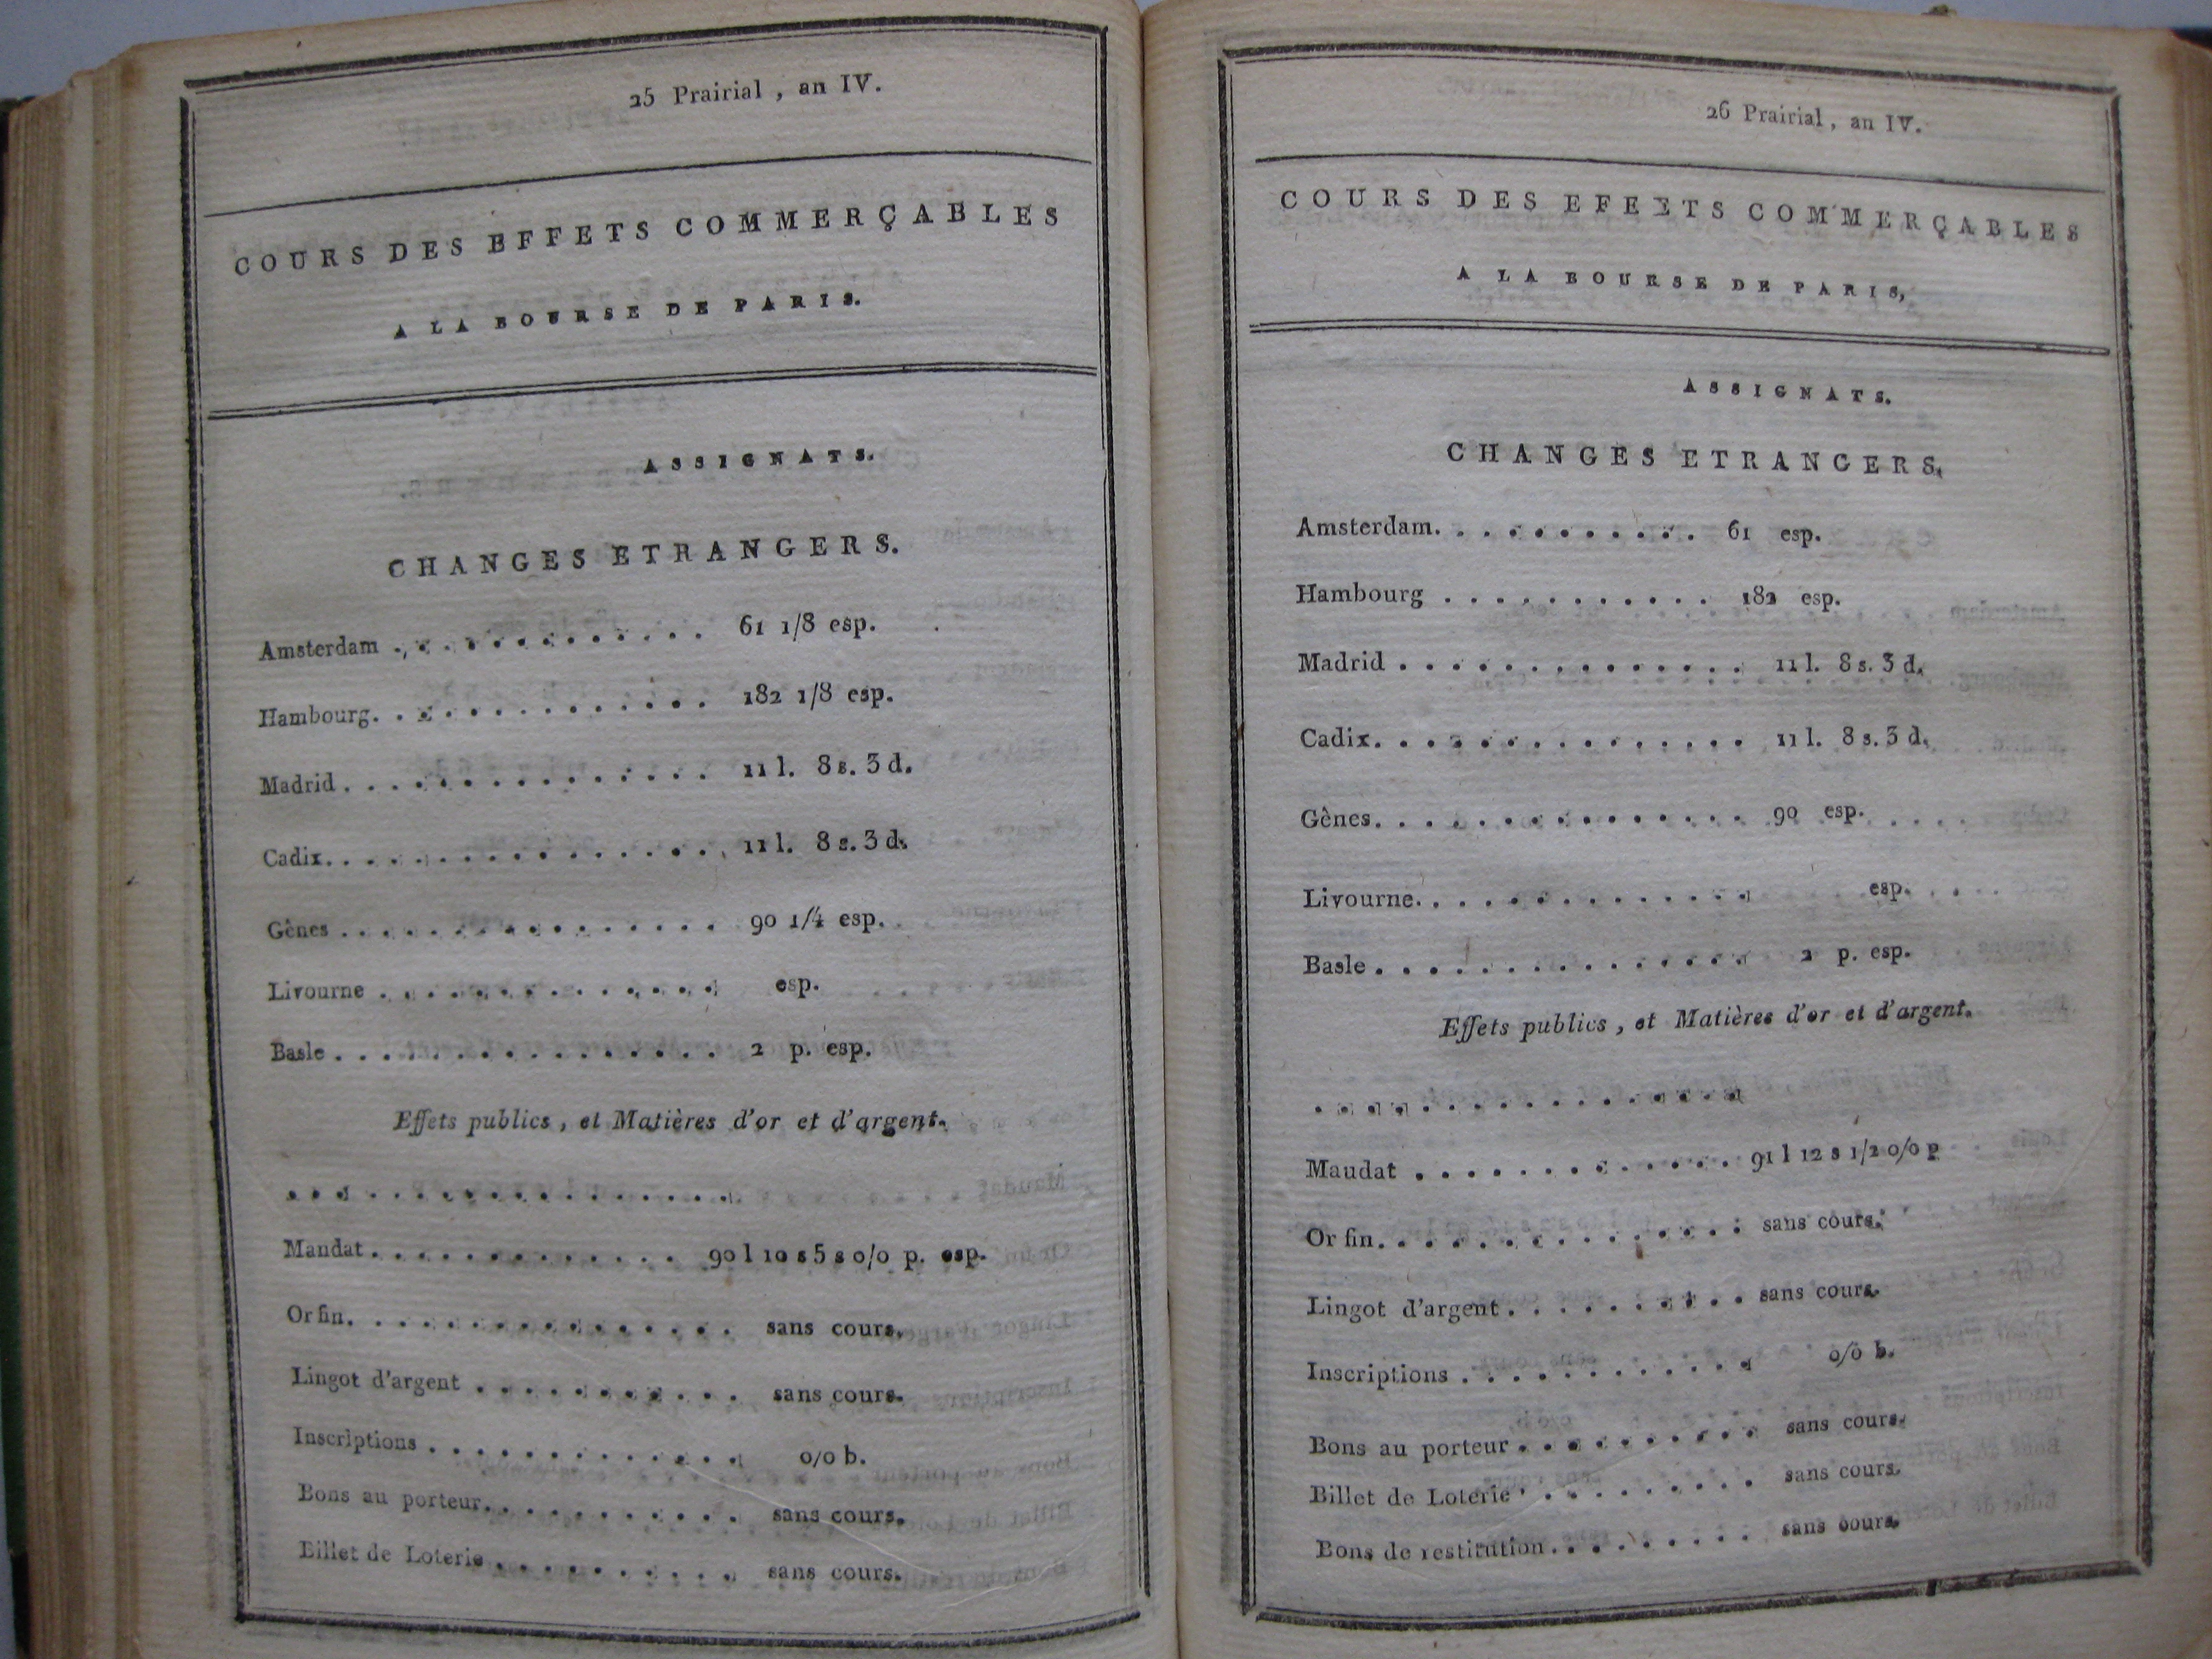 25 Prairial, an IV.
COURS DES EFFETS COMMERÇABLES
A LA BOURSE DE PARIS.
ASSIGNATS.
CHANGES ETRANGERS.
Amsterdam . . . . . . . . . . . . . 61 1/8 esp.
Hambourg. . . . . . . . . . . . . . 182 1/8 esp.
Madrid . . . . . . . . . . . . . . . . 11 l. 8 s. 3 d.
Cadix. . . . . . . . . . . . . . . . . 11 l. 8 s. 3 d.
Gènes . . . . . . . . . . . . . . . . 90 1/4 esp.
Livourne . . . . . . . . . . . . . . esp.
Basle . . . . . . . . . . . . . . . . . 2 p. esp.
Effets publics, et Matières d'or et d'argent.
. . . . . . . . . . . . . . . . . .
Mandat . . . . . . . . . . . . . 90 l 10 s 5 s 0/0 p. esp.
Or fin. . . . . . . . . . . . . . . . sans cours.
Lingot d'argent . . . . . . . . . . . sans cours.
Inscriptions . . . . . . . . . . . . . 0/0 b.
Bons au porteur. . . . . . . . . . . sans cours.
Billet de Loterie . . . . . . . . . . sans cours.
26 Prairial, an IV.
COURS DES EFEETS COMMERÇABLES
A LA BOURSE DE PARIS,
ASSIGNATS.
CHANGES ETRANGERS.
Amsterdam. . . . . . . . . . . 61 esp.
Hambourg . . . . . . . . . . . 182 esp.
Madrid . . . . . . . . . . . . . . . 11 l. 8 s. 3 d.
Cadix. . . . . . . . . . . . . . . . 11 l. 8 s. 3 d.
Gènes. . . . . . . . . . . . . . . . 90 esp.
Livourne. . . . . . . . . . . . . . esp.
Basle . . . . . . . . . . . . . . . . 2 p. esp.
Effets publics, et Matières d'or et d'argent.
. . . . . . . . . . . . . . . . .
Maudat . . . . . . . . . . . . . 91 l 12 s 1/2 0/0 p
Or fin. . . . . . . . . . . . . . . . sans cours.
Lingot d'argent . . . . . . . . . . sans cours.
Inscriptions . . . . . . . . . . . . 0/0 b.
Bons au porteur . . . . . . . . . . sans cours.
Billet de Loterie . . . . . . . . . sans cours.
Bons de restitution . . . . . . . . sans cours.